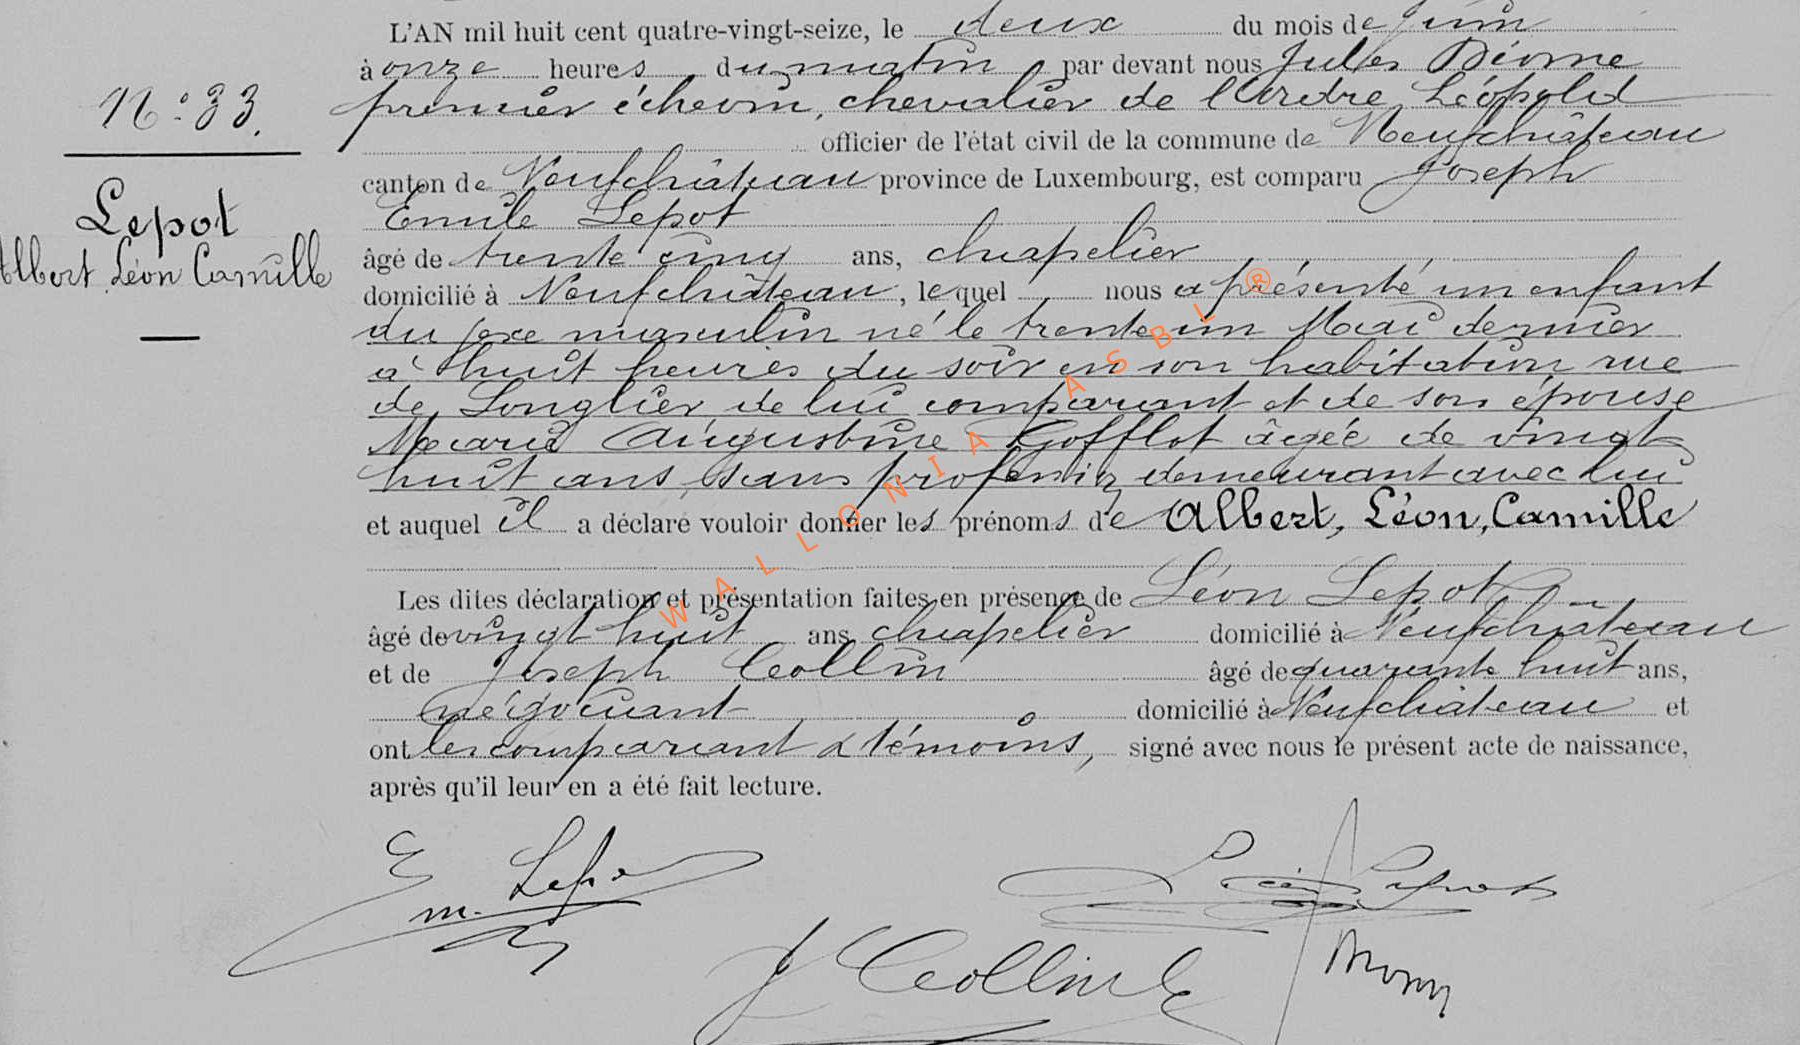 L'AN mil huit cent quatre-vingt-seize, le deux du mois de juin
à onze heures du matin par devant nous Jules
N° 33. premier échevin, chevalier de l'Ordre Léopold
officier de l'état civil de la commune de Neufchâteau
canton de Neufchâteau province de Luxembourg, est comparu Joseph
Lepot Emile Lepot
Albert Léon Camille âgé de trente cinq ans, chapelier
domicilié à Neufchâteau, lequel nous a présenté un enfant
du sexe masculin né le trente un Mai dernier
à huit heures du soir en son habitation rue
de Longlier de lui comparant et de son épouse
Marie Augustine Gofflot âgée de vingt
huit ans, sans profession demeurant avec lui
et auquel il a déclaré vouloir donner les prénoms de Albert, Léon, Camille
Les dites déclaration et présentation faites en présence de Léon Lepot
âgé de vingt huit ans chapelier domicilié à Neufchâteau
et de Joseph Collin âgé de quarante huit ans,
négociant domicilié à Neufchâteau et
ont les comparant & témoins, signé avec nous le présent acte de naissance,
après qu'il leur en a été fait lecture.
Em. Lepot Léon Lepot
J Collin
WALLONIA ASBL ®